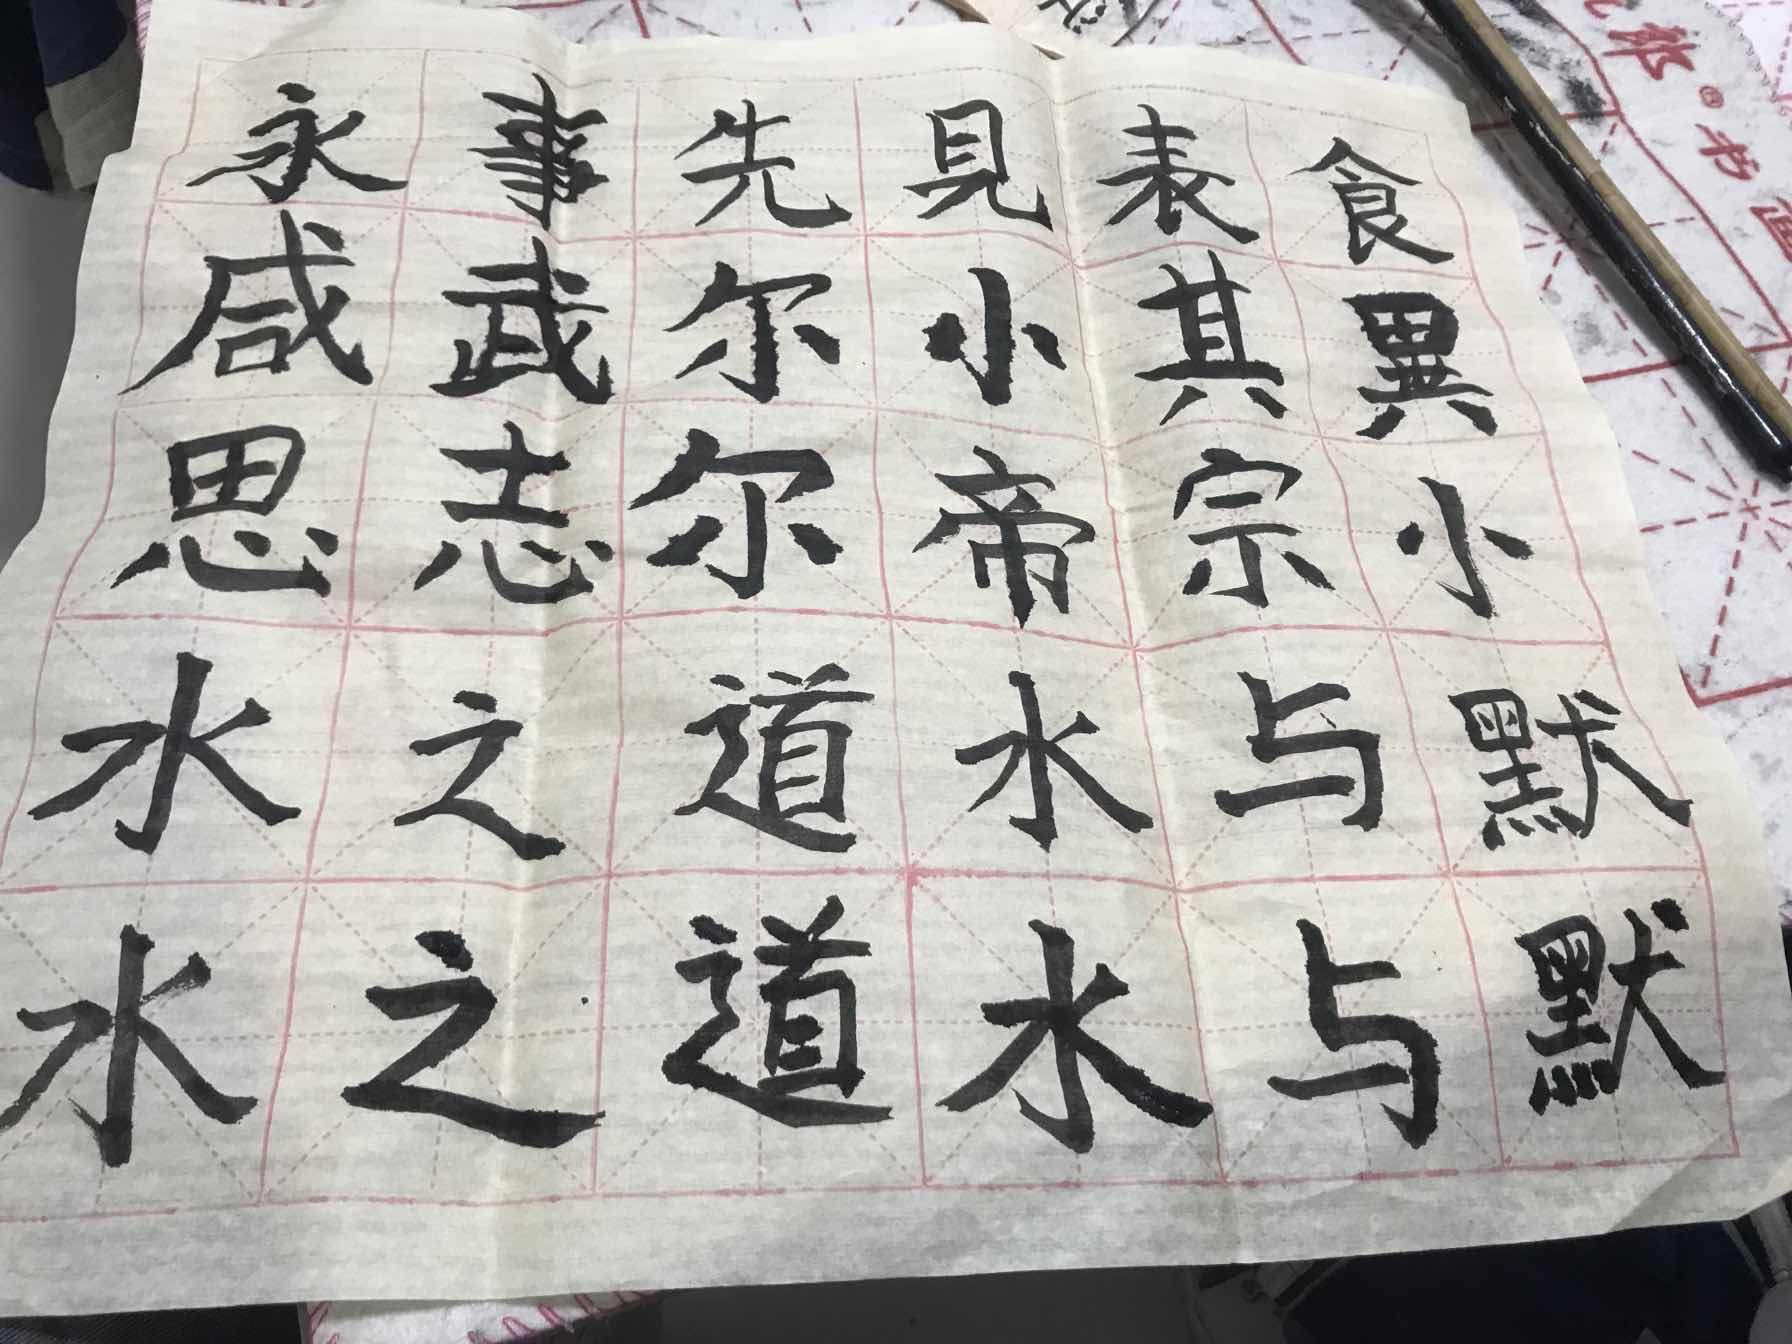 永事先見表食
咸武尔小其異
思志尔帝宗小
水之道水与默
水之道水与默
书